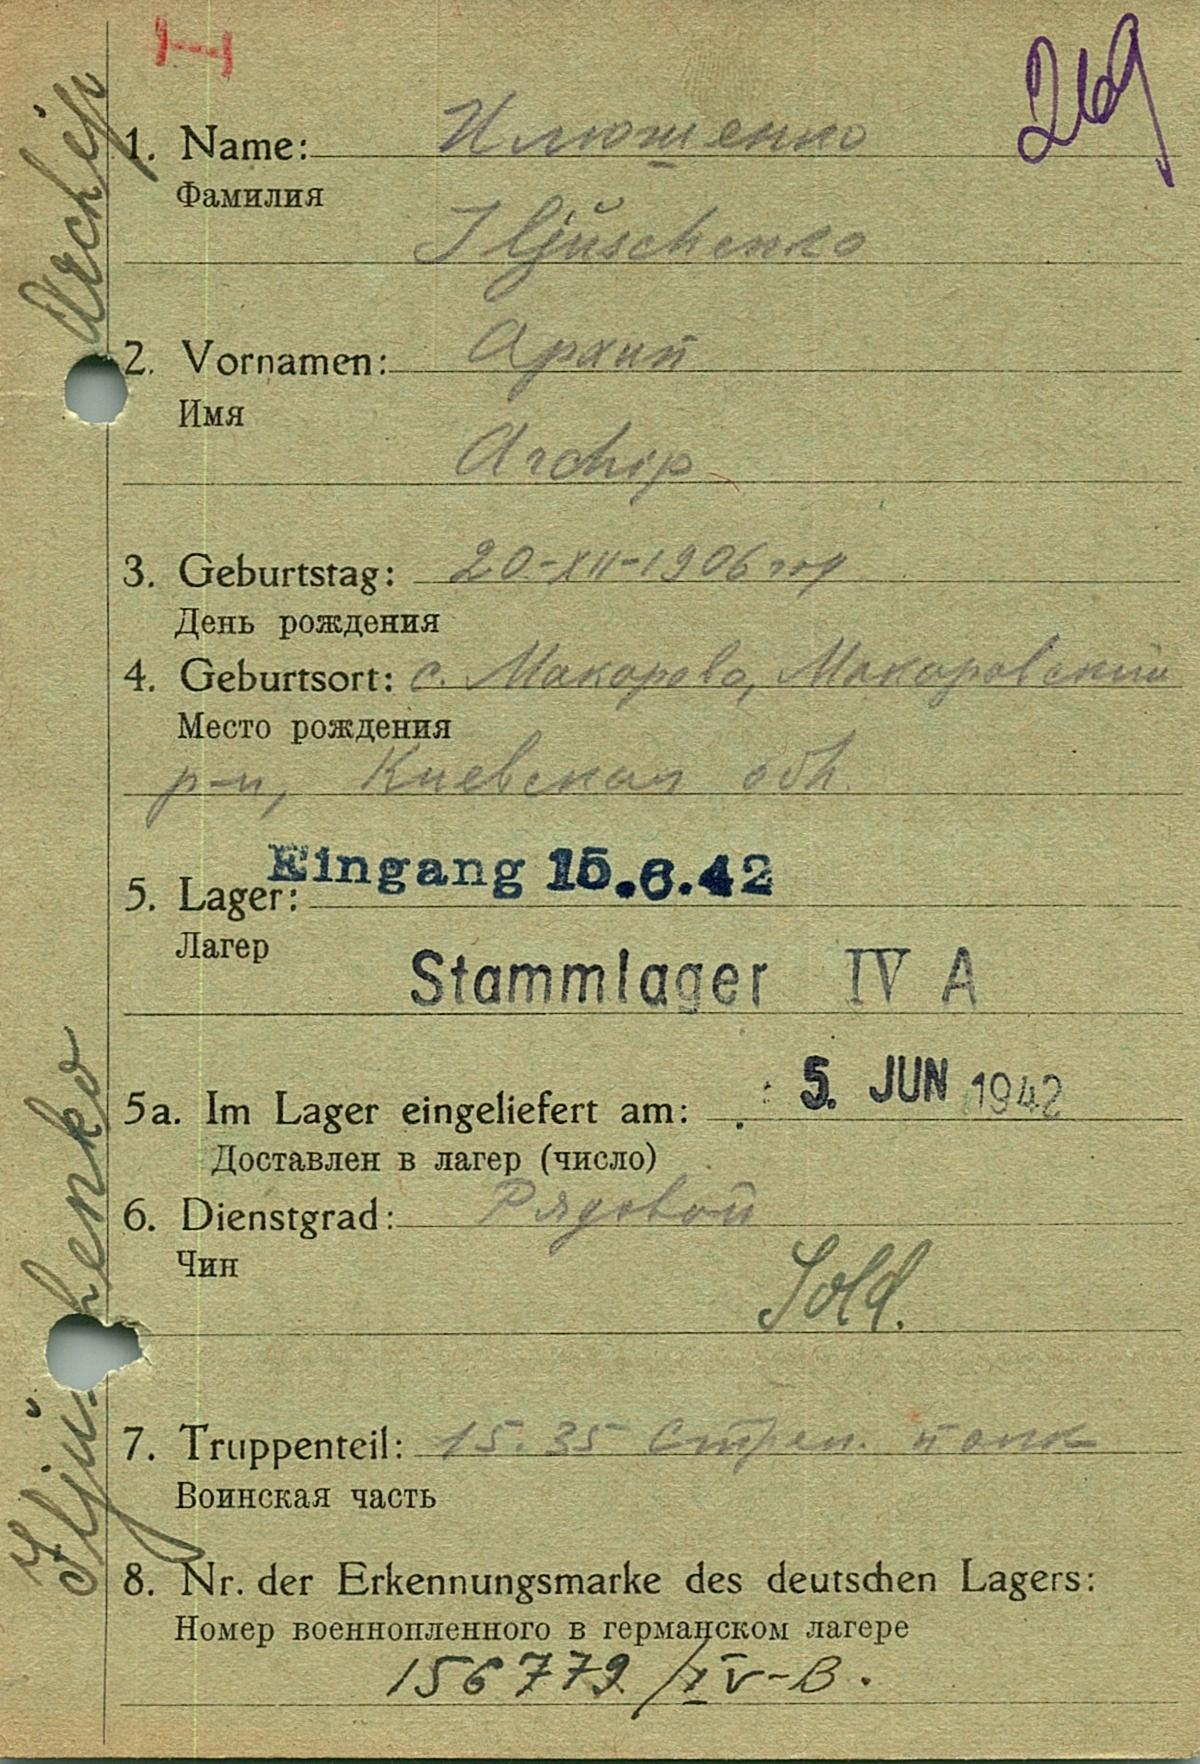 I
269
1. Name: Илюшенко
Фамилия
Iljuschenko
2. Vornamen: Архип
Имя
Archip
3. Geburtstag: 20-XII-1906 год
День рождения
4. Geburtsort: с. Макарово, Макаровский
Место рождения
р-н, Киевская обл.
Eingang 15.6.42
5. Lager:
Лагер
Stammlager IV A
5. JUN 1942
5a. Im Lager eingeliefert am:
Доставлен в лагер (число)
6. Dienstgrad: Рядовой
Чин
Sold.
7. Truppenteil: 15.35 Стрел. полк
Воинская часть
8. Nr. der Erkennungsmarke des deutschen Lagers:
Номер военнопленного в германском лагере
156779/IV-B.
Iljuschenko Archip